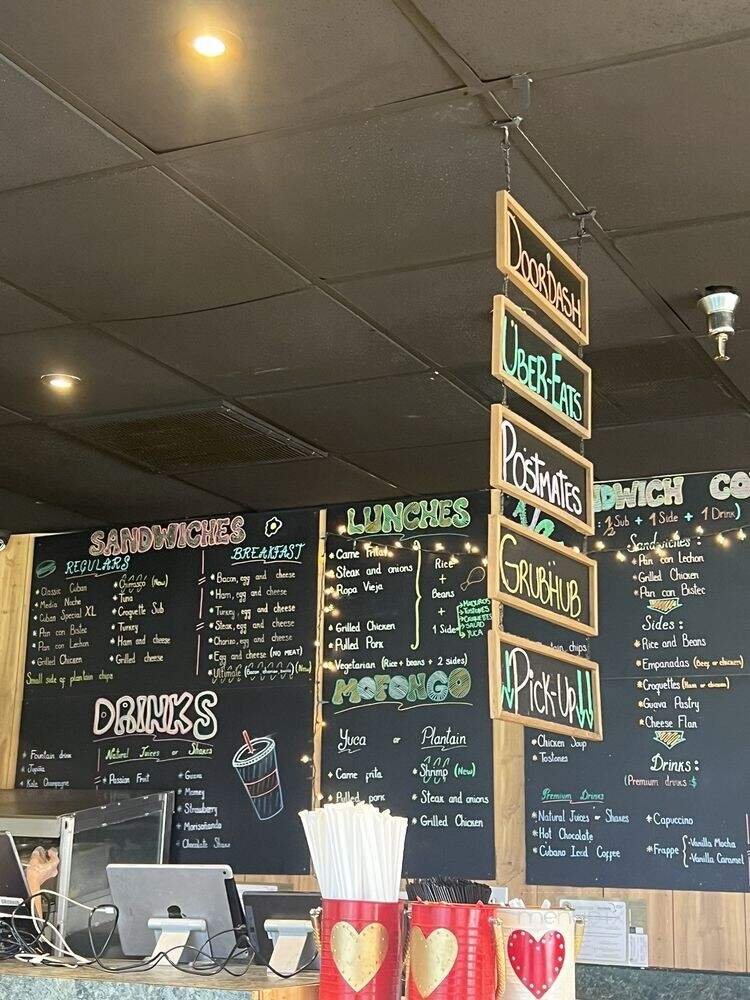 DOORDASH
UBER-EATS
POSTMATES
GRUBHUB
PICK-UP
SANDWICHES
REGULARS
* Classic Cuban
* Media Noche
* Cuban Special XL
* Pan con Bistec
* Pan con Lechon
* Grilled Chicken
Small side of plantain chips
(New)
* Tuna
* Croquette Sub
* Turkey
* Ham and cheese
* Grilled cheese
BREAKFAST
* Bacon, egg and cheese
* Ham, egg and cheese
* Turkey, egg and cheese
* Steak, egg and cheese
* Chorizo, egg and cheese
* Egg and cheese (NO MEAT)
* Ultimate (New)
DRINKS
* Fountain drink
* Jupiña
Natural Juices or Shakes
* Passion Fruit
* Guava
* Mamey
* Strawberry
* Chocolate Shake
LUNCHES
* Carne Frita
* Steak and onions
* Ropa Vieja
* Grilled Chicken
* Pulled Pork
* Vegetarian (Rice + beans + 2 sides)
Rice
+
Beans
+
1 Side
MADUROS
TOSTONES
CROQUETTES
SALAD
YUCA
MOFONGO
Yuca or Plantain
* Carne frita
* Pulled pork
* Shrimp (New)
* Steak and onions
* Grilled Chicken
chips
* Chicken Soup
* Tostones
Premium Drinks
* Natural Juices or Shakes
* Hot Chocolate
* Cubano Iced Coffee
* Capuccino
* Frappe
- Vanilla Mocha
- Vanilla Caramel
DWICH CO
: 1 Sub + 1 Side + 1 Drink)
Sandwiches:
* Pan con Lechon
* Grilled Chicken
* Pan con Bistec
Sides:
* Rice and Beans
* Empanadas (Beef or chicken)
* Croquettes (Ham or chicken)
* Guava Pastry
* Cheese Flan
Drinks:
(Premium drinks $